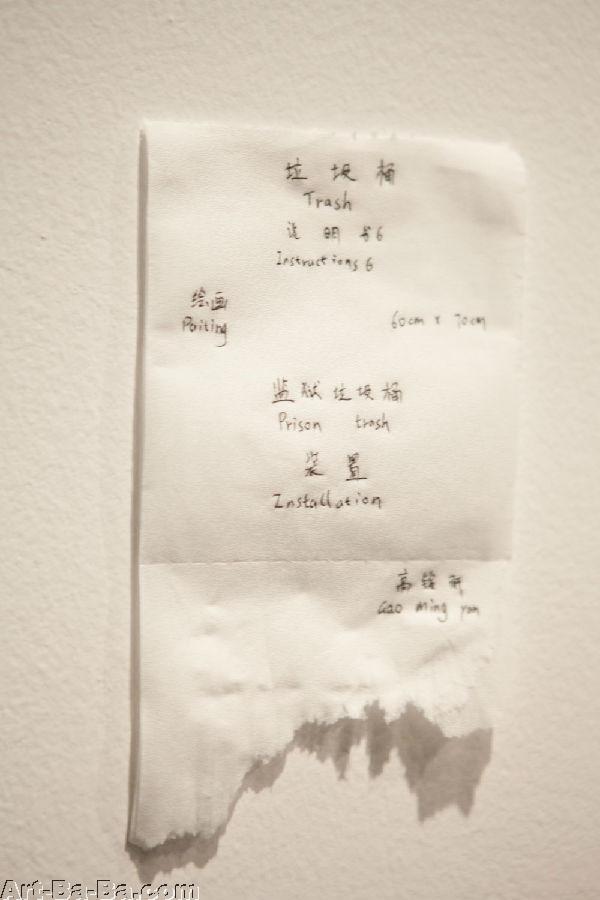 垃圾桶
Trash
说明书6
Instructions 6
绘画
Paiting 60cm x 70cm
监狱垃圾桶
Prison trash
装置
Installation
高铭研
Gao ming yan
Art-Ba-Ba.com